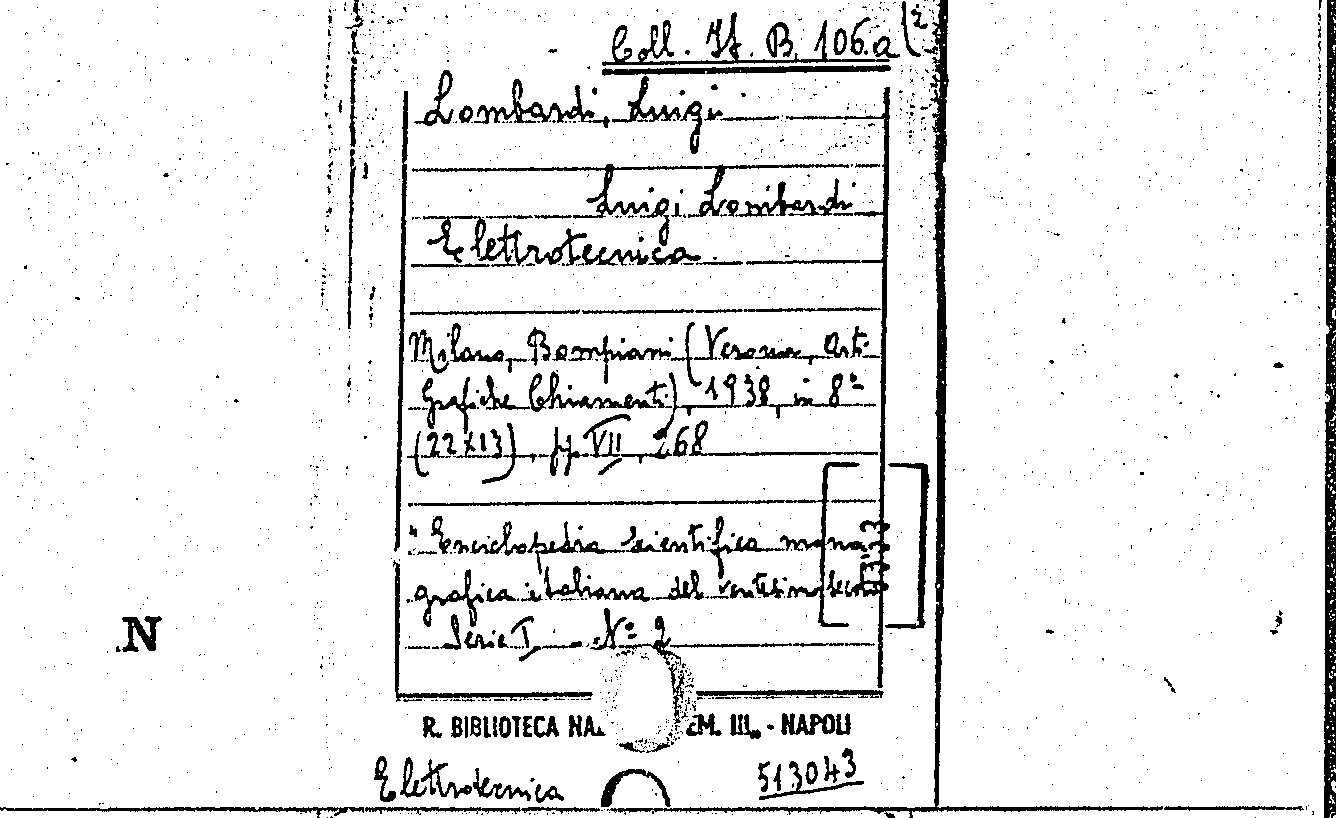 Coll. It. B. 106.a (2
Lombardi, Luigi
Luigi Lombardi
Elettrotecnica.
Milano, Bompiani (Verona, Arti
Grafiche Chiamenti), 1938, in 8°
(22x13), pp. VII, 268
"Enciclopedia scientifica mono-
grafica italiana del ventesimo secolo
Serie I - N° 2
N
R. BIBLIOTECA NA. EM. III. - NAPOLI
Elettrotecnica 513043